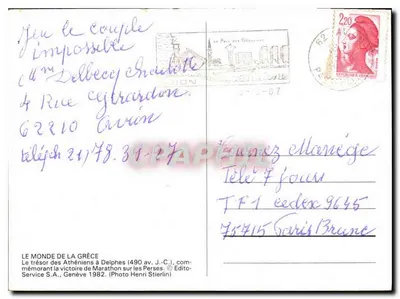 Jeu le couple
impossible
Mme Delbecq Charlotte
4 Rue Girardon
62210 Avion
téléph 21, 78.31.27
2,20
62
Fournez Manège
Télé 7 jours
TF1 cedex 9645
75715 Paris Brune
LE MONDE DE LA GRÈCE
Le trésor des Athéniens à Delphes (490 av. J.-C.), com-
mémorant la victoire de Marathon sur les Perses. © Edito-
Service S.A., Genève 1982. (Photo Henri Stierlin)